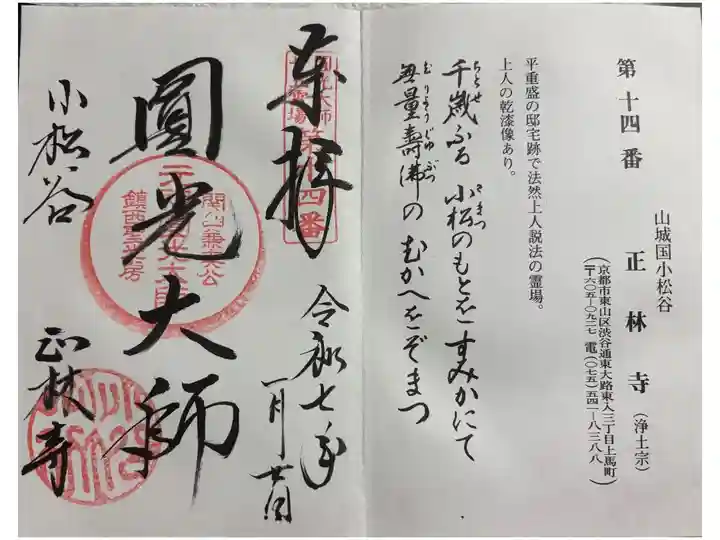 第十四番
山城国小松谷
正林寺（浄土宗）
（京都市東山区渋谷通東大路東入三丁目上馬町
〒六〇五－〇九二七 電（〇七五）五四一－八三八八）
平重盛の邸宅跡で法然上人説法の霊場。
上人の乾漆像あり。
千歳ふる 小松のもとを すみかにて
ちとせ こまつ
無量壽佛の むかへをぞまつ
むりょうじゅぶつ
奉拝
第十四番
令和七年
一月廿日
圓光大師
関山乗志公
鎮西聖光房
小松谷
正林寺